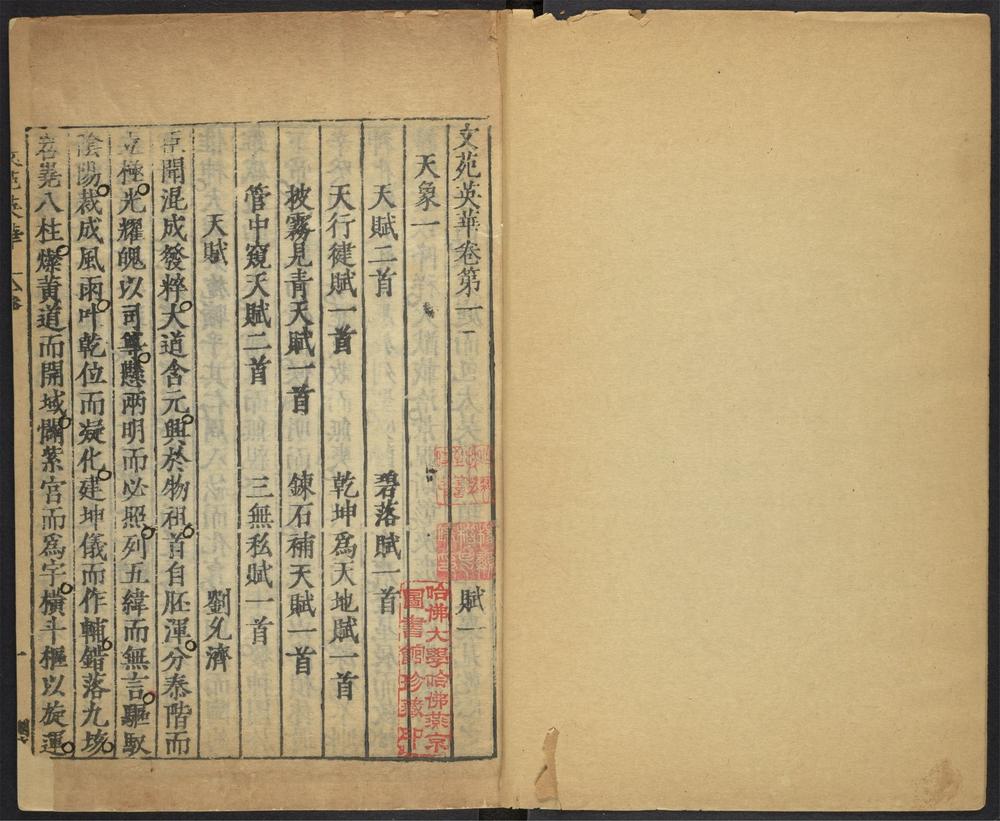 文苑英華卷第一 賦一
天象一
天賦二首 碧落賦一首
天行健賦一首 乾坤爲天地賦一首
披霧見青天賦一首 鍊石補天賦一首
管中窺天賦二首 三無私賦一首
天賦 劉允濟
臣聞混成發粹大道含元興於物祖首自胚渾分泰階而
立極光耀魄以司尊懸兩明而必照列五緯而無言驅馭
陰陽裁成風雨叶乾位而凝化建坤儀而作輔錯落九垓
岧嶤八柱燦黃道而開域闢紫宮而爲宇橫斗樞以旋運
哈佛大學哈佛燕京
圖書館珍藏印